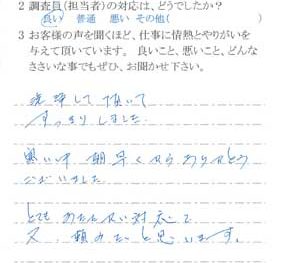 2 調査員(担当者)の対応は、どうでしたか?
良い 普通 悪い その他( )
3 お客様の声を聞くほど、仕事に情熱とやりがいを
与えて頂いています。 良いこと、悪いこと、どんな
ささいな事でもぜひ、お聞かせ下さい。
洗浄して頂いて
すっきりしました。
寒い中 朝早くから ありがとう
ございました
とても あたたかい対応で
又、頼みたいと思います。